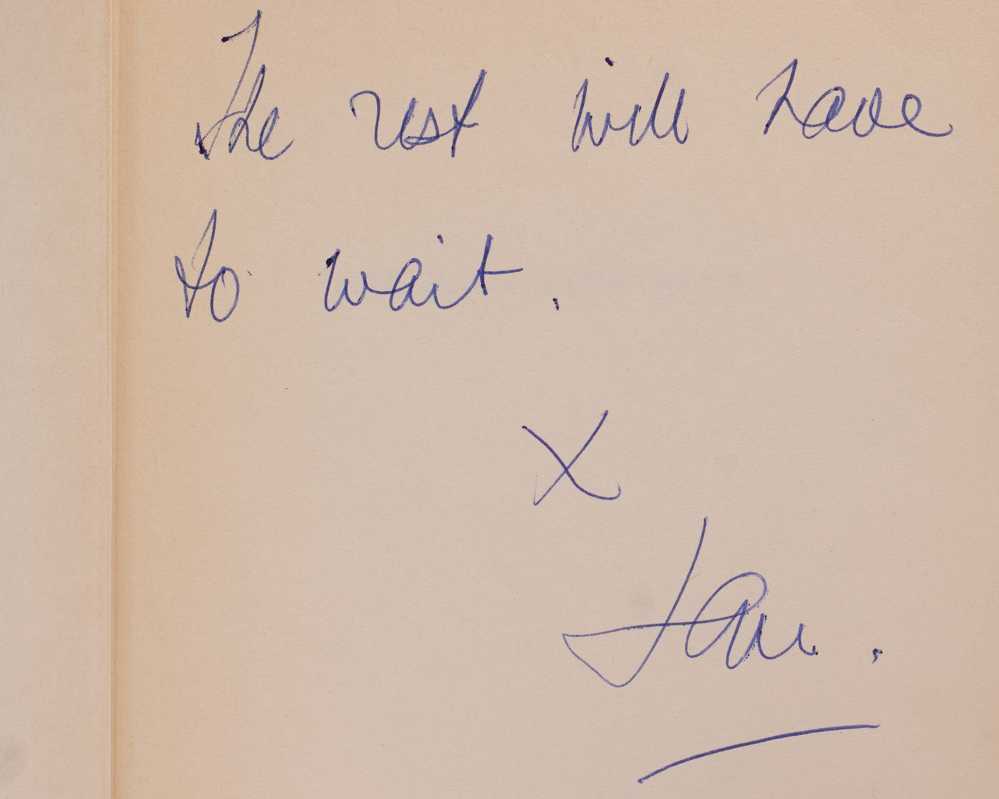 The rest will have
to wait.
X
Ian.